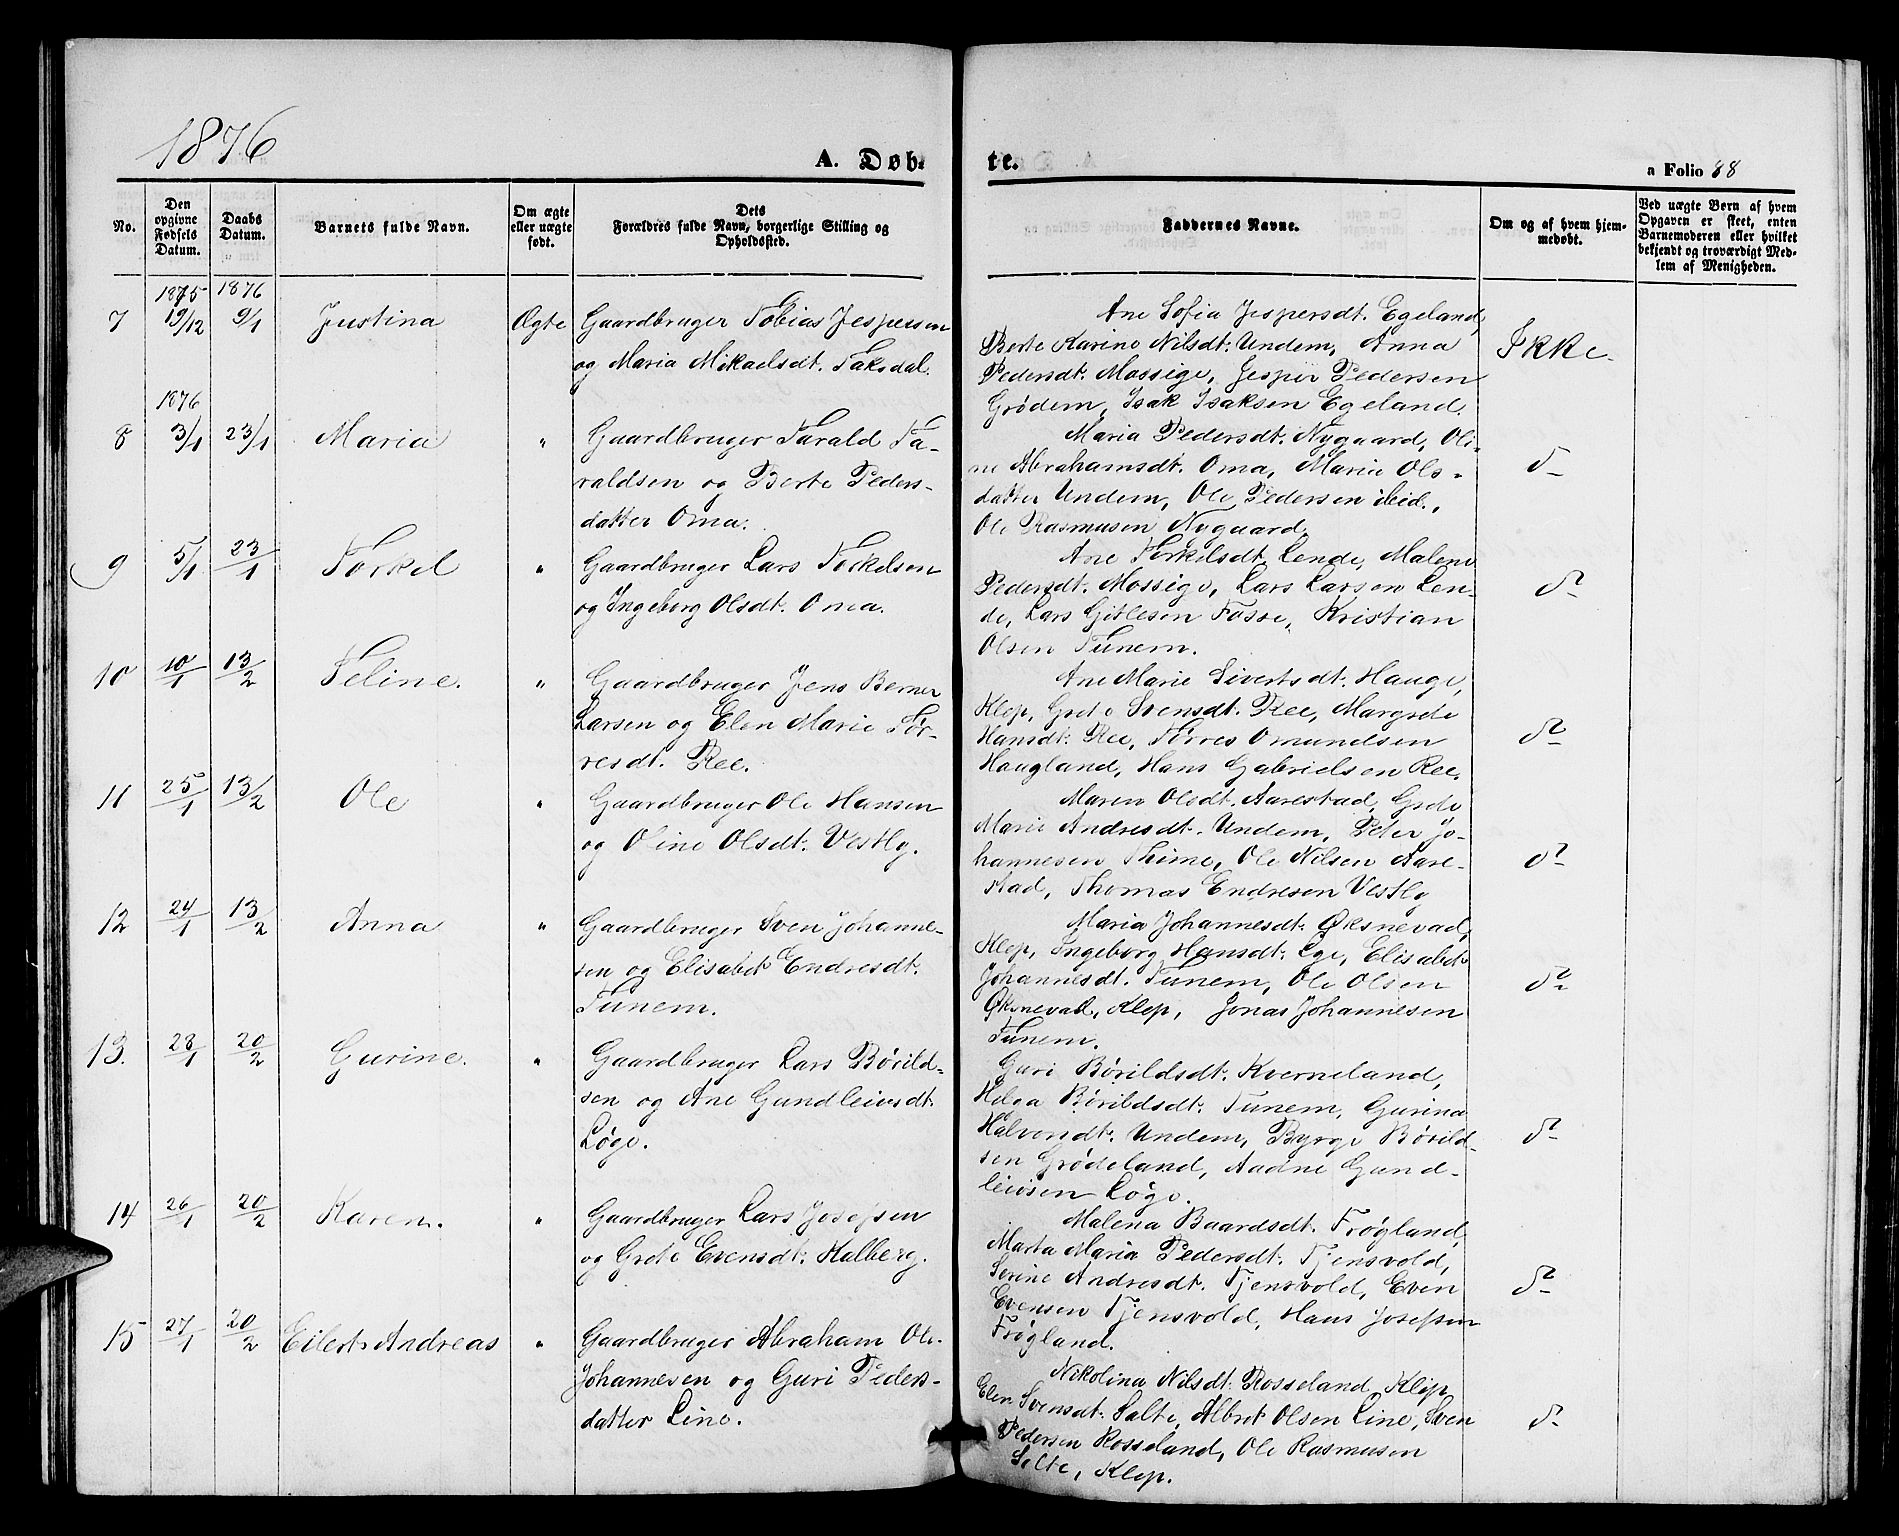 1876
A. Døb-
te.
a Folio 88
No.
Den opgivne Fødsels Datum.
Daabs Datum.
Barnets fulde Navn.
Om ægte eller uægte født.
Dets Forældres fulde Navn, borgerlige Stilling og Opholdssted.
Faddernes Navne.
Om og af hvem hjemmedøbt.
Ved uægte Børn af hvem Opgaven er skeet, enten Barnemoderen eller hvilket bekjendt og troværdigt Medlem af Menigheden.
1875 1876
7 19/12 9/1 Justina Ægte Gaardbruger Tobias Jespersen
og Maria Mikaelsdt. Taksdal.
Ane Sofia Jespersdt. Egeland,
Berte Karine Nilsdt. Undem, Anna
Pedersdt. Mossige, Jesper Pedersen
Grødem, Isak Isaksen Egeland.
Ikke.
1876
8 3/1 23/1 Maria " Gaardbruger Tarald Ta-
raldsen og Berte Peders-
datter Oma.
Maria Pedersdt. Nygaard, Oli-
ne Abrahamsdt. Oma, Marie Ols-
datter Undem, Ole Pedersen ibid.,
Ole Rasmusen Nygaard.
do
9 5/1 23/1 Torkel " Gaardbruger Lars Torkelsen
og Ingeborg Olsdt. Oma.
Ane Torkelsdt. Lende, Malene
Pedersdt. Mossige, Lars Larsen Len-
de, Lars Gitlesen Fosse, Kristian
Olsen Tunem.
do
10 10/1 13/2 Teline. " Gaardbruger Jens Berner
Larsen og Elen Marie Tør-
resdt. Ree.
Ane Marie Sivertsdt. Hauge,
Klep, Grete Svensdt. Ree, Margrete
Hansdt. Ree, Tørres Omundsen
Haugland, Hans Gabrielsen Ree.
do
11 25/1 13/2 Ole " Gaardbruger Ole Hansen
og Oline Olsdt. Vestly.
Maren Olsdt. Aarestad, Grete
Marie Andresdt. Undem, Peter Jo-
hannesen Thime, Ole Nilsen Aare-
stad, Thomas Endresen Vestly
do
12 24/1 13/2 Anna " Gaardbruger Sven Johanne-
sen og Elisabet Endresdt.
Tunem.
Maria Johannesdt. Øksnevad,
Klep, Ingeborg Hansdt. Ege, Elisabet
Johannesdt. Tunem, Ole Olsen
Øksnevad, Klep, Jonas Johannesen
Tunem.
do
13. 28/1 20/2 Gurine. " Gaardbruger Lars Børild-
sen og Ane Gundleivsdt.
Løge.
Guri Børildsdt. Kverneland,
Helga Børildsdt. Tunem, Gurina
Halvorsdt. Undem, Byrge Børild-
sen Grødeland, Aadne Gund-
leivsen Løge.
do
14 26/1 20/2 Karen. " Gaardbruger Lars Josefsen
og Grete Evensdt. Halberg.
Malena Baardsdt. Frøgland,
Marta Maria Pedersdt. Tjensvold,
Serine Andresdt. Tjensvold, Even
Evensen Tjensvold, Hans Josefsen
Frøgland.
do
15 27/1 20/2 Eilert Andreas " Gaardbruger Abraham Ole
Johannesen og Guri Peders-
datter Line.
Nikolina Nilsdt. Rosseland, Klep,
Elen Svensdt. Salte, Albret Olsen Line, Sven
Pedersen Rosseland, Ole Rasmusen
Salte, Klep.
do